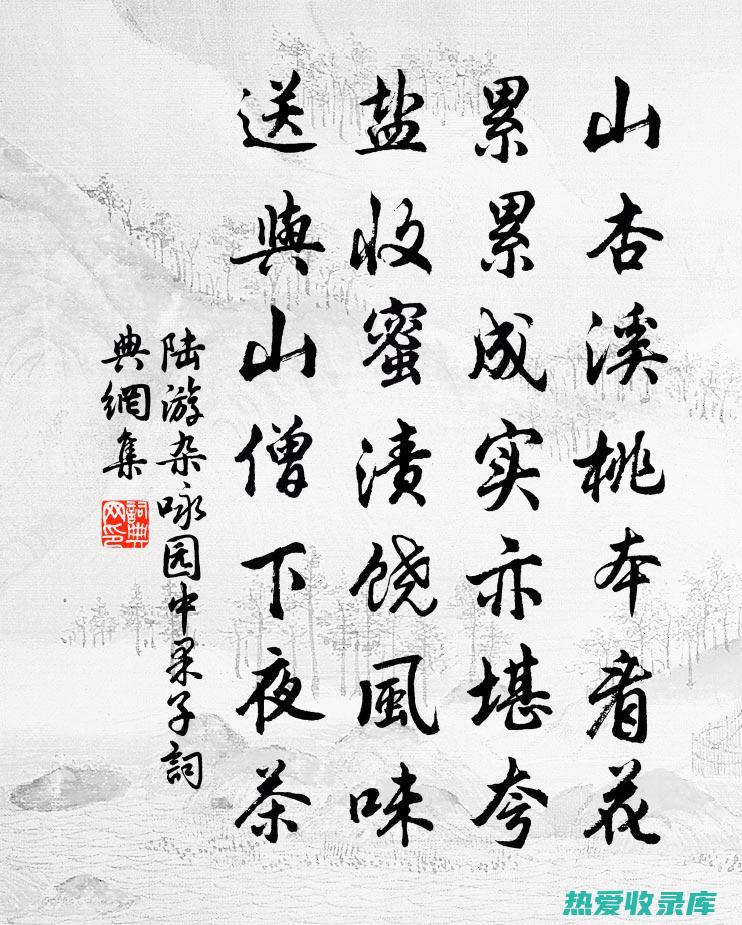 山杏溪桃本看花
累累成实亦堪夸
盐收蜜渍饶風味
送與山僧下夜茶
陆游杂咏园中果子詞
典網集
詞典
网印
热爱收录库